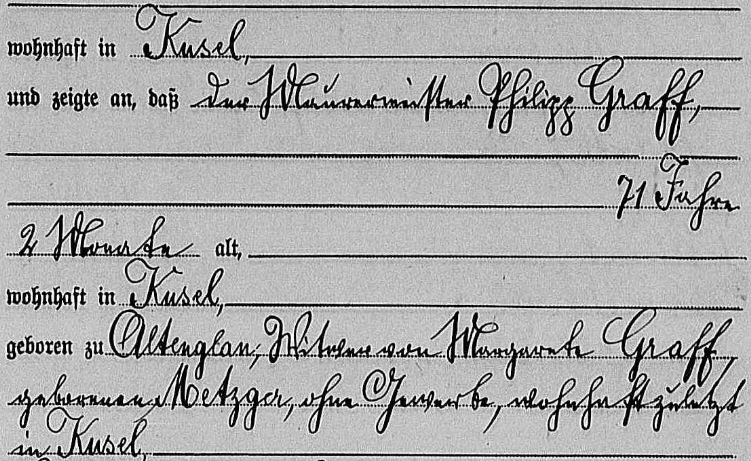 wohnhaft in Kusel,
und zeigte an, daß der Maurermeister Philipp Graff,
71 Jahre
2 Monate alt,
wohnhaft in Kusel,
geboren zu Altenglan, Witwer von Margarete Graff,
geborenen Metzger, ohne Gewerbe, wohnhaft zuletzt
in Kusel,